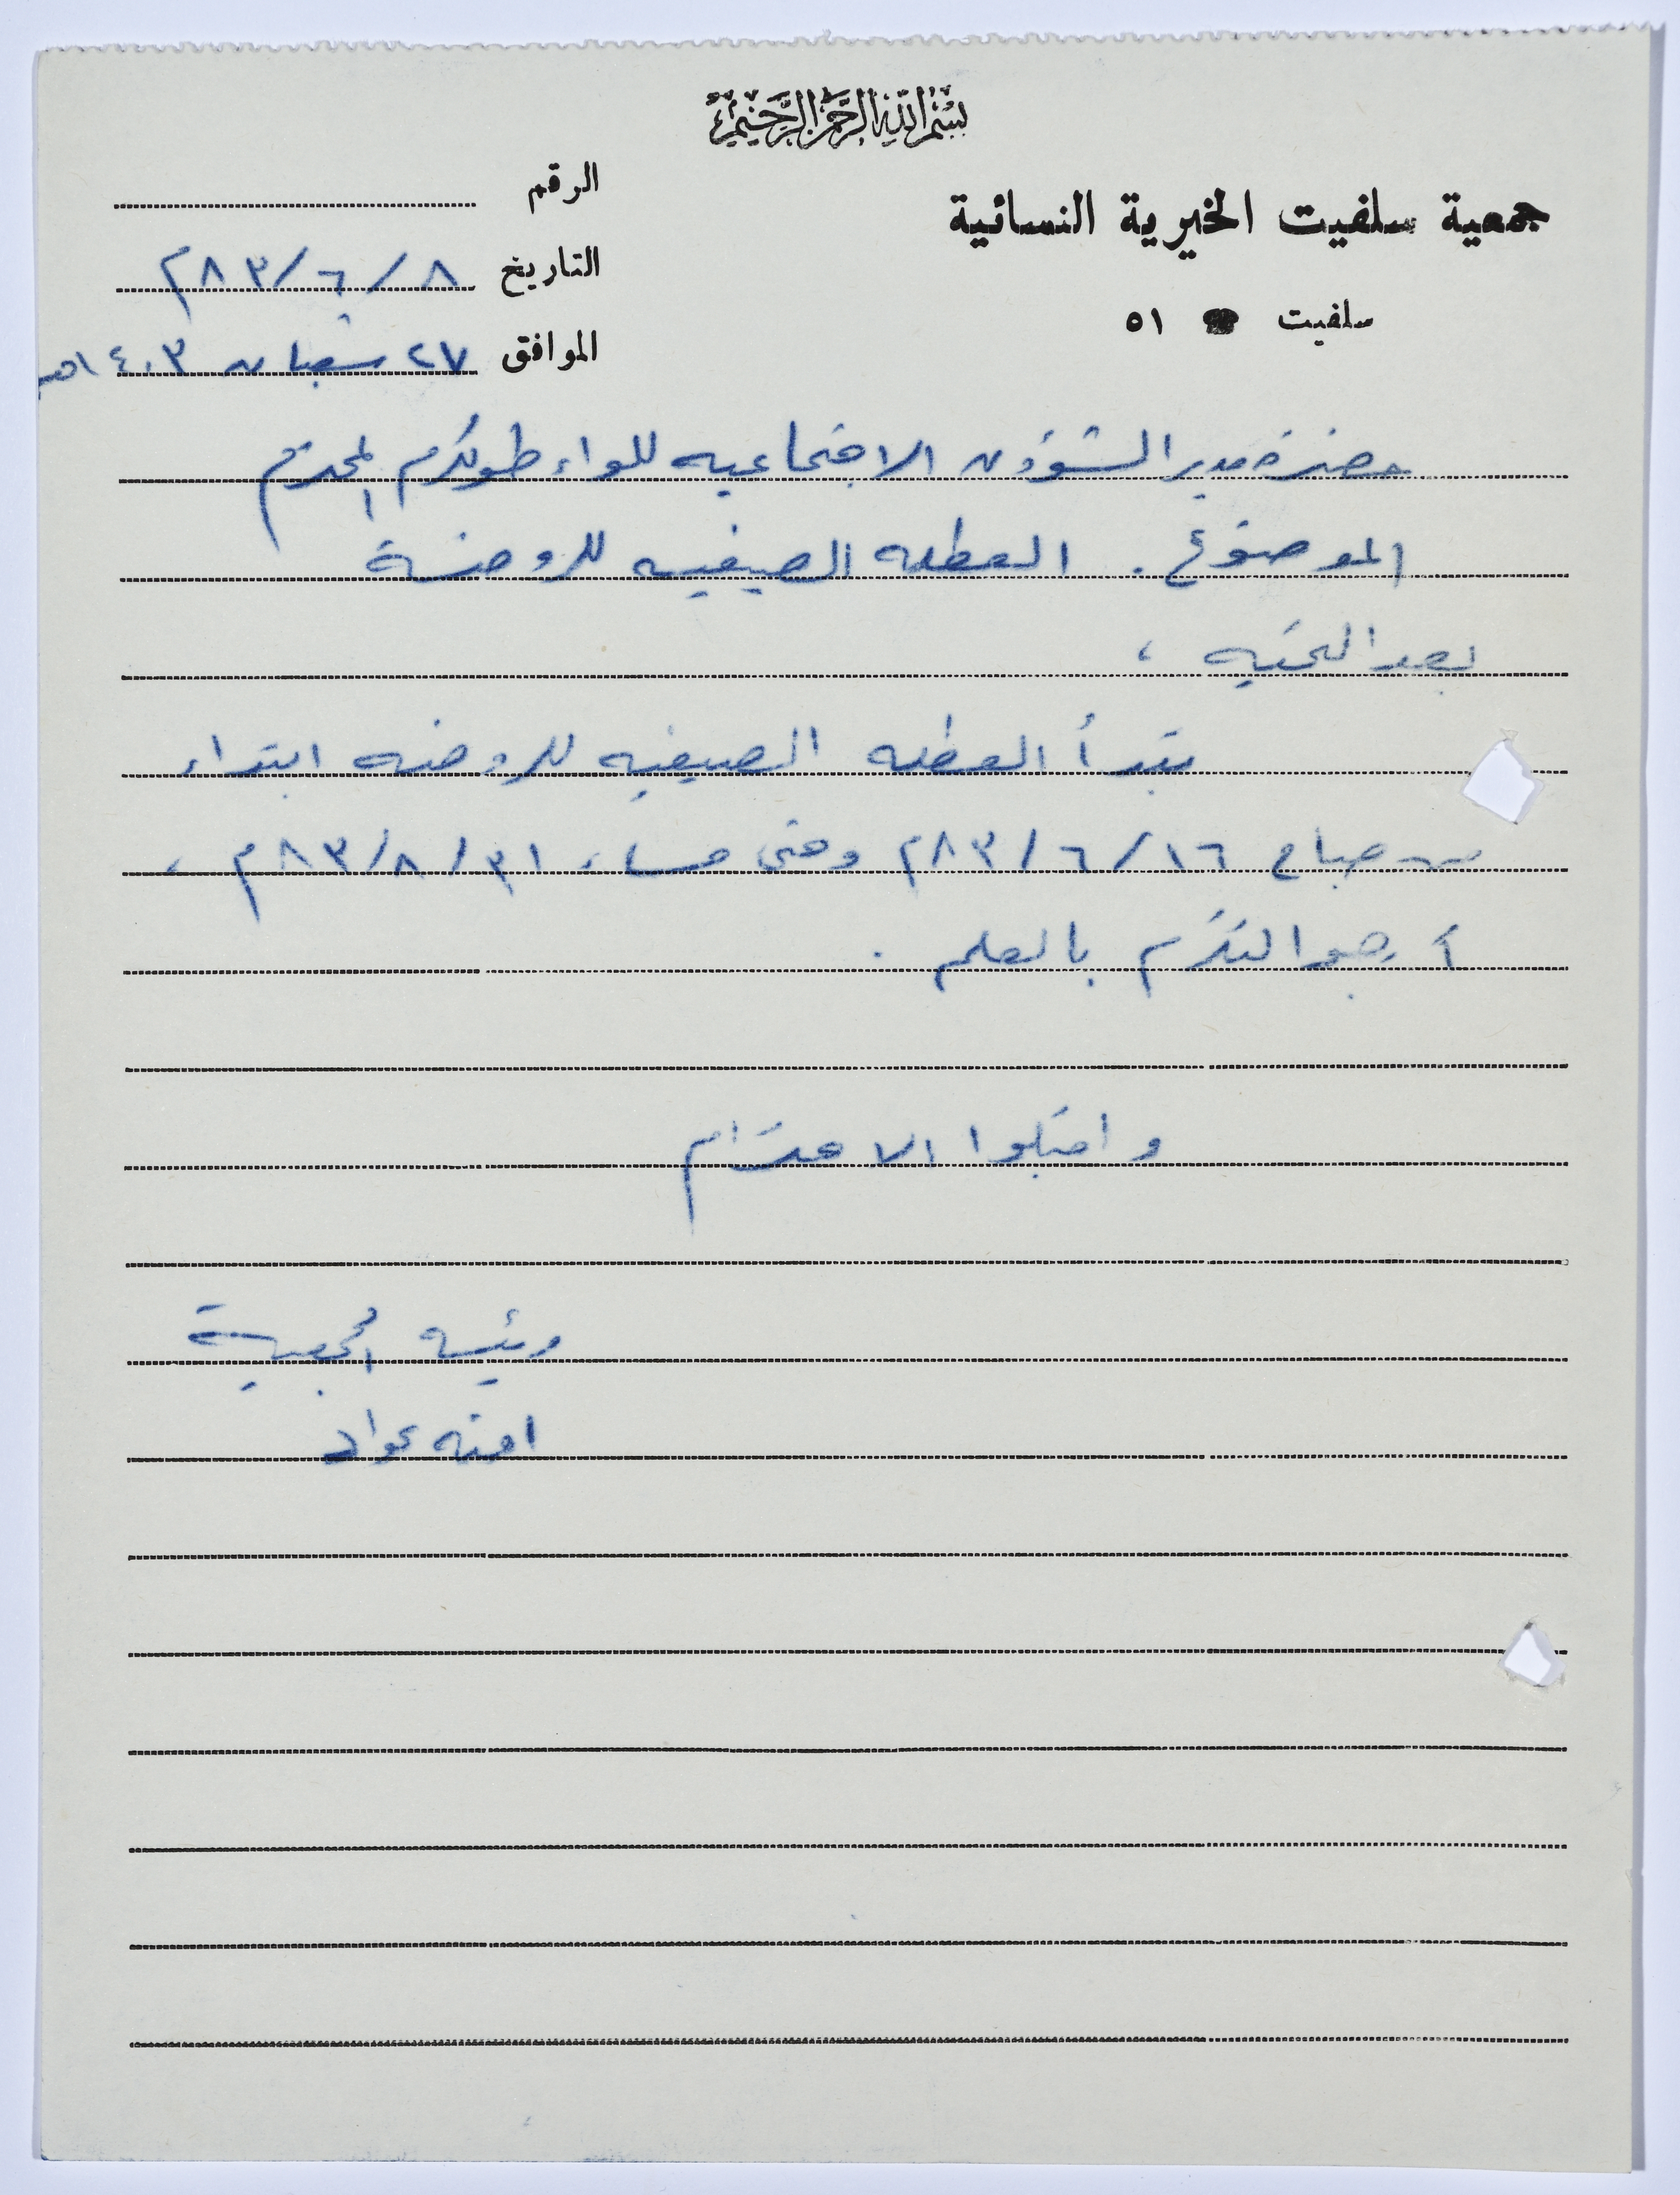 بسم الله الرحمن الرحيم
جمعية سلفيت الخيرية النسائية
سلفيت ☎ ٥١
الرقم
التاريخ ٨ / ٦ / ٨٣م
الموافق ٢٧ شعبان ١٤٠٣هـ
حضرة مدير الشؤون الاجتماعيه للواء طولكرم المحترم
الموضوع . العطله الصيفيه للروضة
بعد التحيه ،
تبدأ العطله الصيفيه للروضه ابتداء
من صباح ١٦ / ٦ / ٨٣م وحتى مساء ٣١ / ٨ / ٨٣م ،
أرجو التكرم بالعلم .
واقبلوا الاحترام
رئيسه الجمعية
امنه عواد